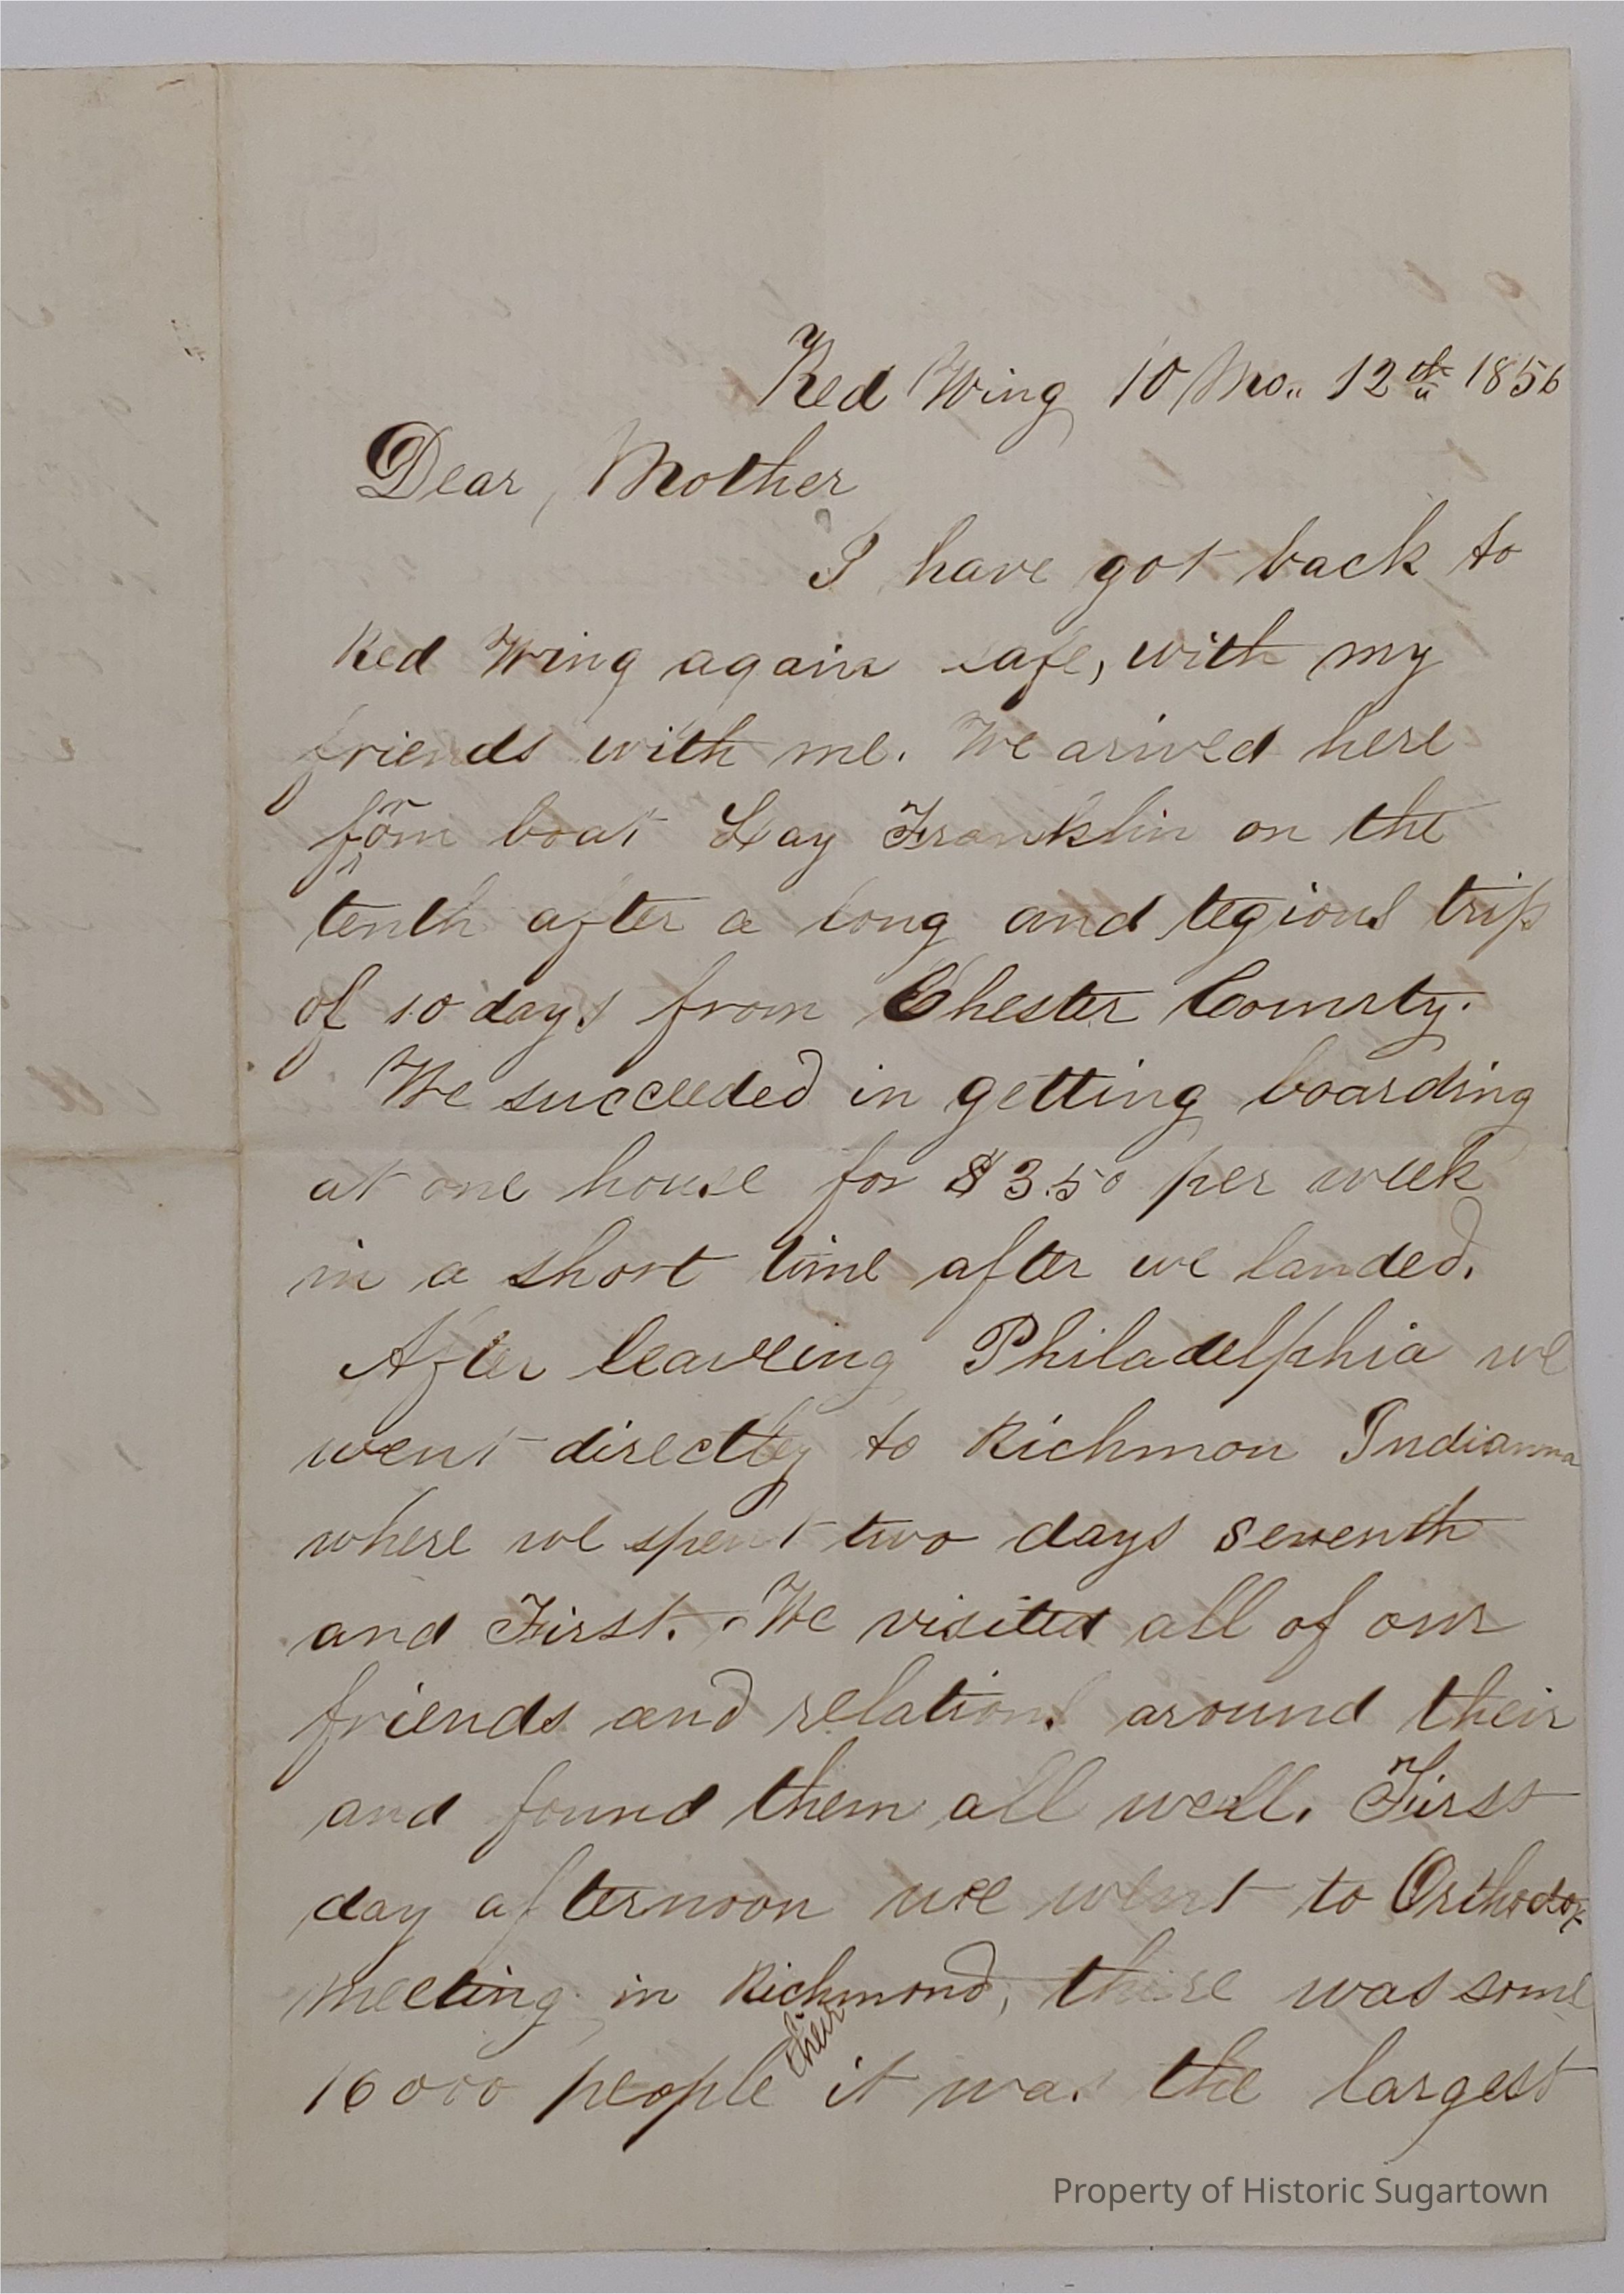 Red Wing 10 Mo.. 12th 1856
Dear, Mother
I have got back to
Red Wing again safe, with my
friends with me. We arived here
from boat Fay Franklin on the
tenth after a long and tegious trip
of 10 days from Chester County.
We succeeded in getting boarding
at one house for $3.50 per week
in a short time after we landed.
After leaveing Philadelphia we
went directly to Richmon Indianna
where we spent two days seventh
and First. We visited all of our
friends and relations around their
and found them all well. First
day afternoon we went to Orthodox
meeting in Richmond, there was some
16000 people their it was the largest
Property of Historic Sugartown